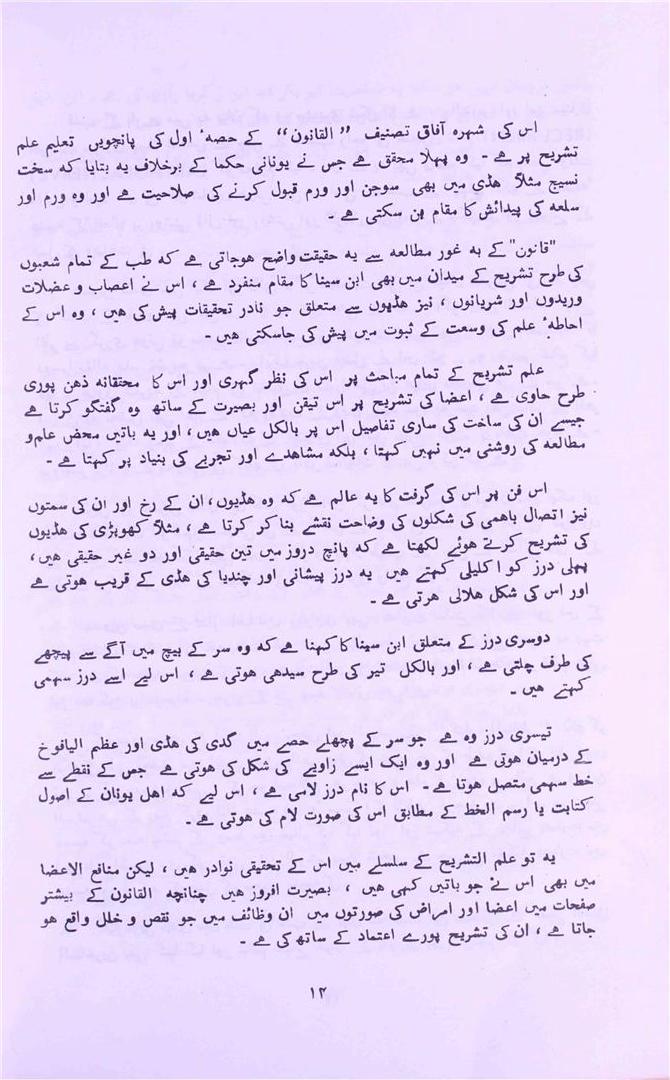 اس کی شہرہ آفاق تصنیف ”القانون“ کے حصہٴ اول کی پانچویں تعلیم علم
تشریح پر ہے ۔ وہ پہلا محقق ہے جس نے یونانی حکما کے برخلاف یہ بتایا کہ سخت
نسیج مثلاً ھڈی میں بھی سوجن اور ورم قبول کرنے کی صلاحیت ہے اور وہ ورم اور
سلعہ کی پیدائش کا مقام بن سکتی ہے ۔
”قانون“ کے بہ غور مطالعہ سے یہ حقیقت واضح ھوجاتی ہے کہ طب کے تمام شعبوں
کی طرح تشریح کے میدان میں بھی ابن سینا کا مقام منفرد ہے ، اس نے اعصاب و عضلات
وریدوں اور شریانوں ، نیز ھڈیوں سے متعلق جو نادر تحقیقات پیش کی ھیں ، وہ اس کے
احاطہٴ علم کی وسعت کے ثبوت میں پیش کی جاسکتی ھیں ۔
علم تشریح کے تمام مباحث پر اس کی نظر گہری اور اس کا محققانہ ذھن پوری
طرح حاوی ہے ، اعضا کی تشریح پر اس تیقن اور بصیرت کے ساتھ وہ گفتگو کرتا ہے
جیسے ان کی ساخت کی ساری تفاصیل اس پر بالکل عیاں ھیں ، اور یہ باتیں محض علم و
مطالعہ کی روشنی میں نہیں کہتا ، بلکہ مشاھدے اور تجربے کی بنیاد پر کہتا ہے ۔
اس فن پر اس کی گرفت کا یہ عالم ہے کہ وہ ھڈیوں ، ان کے رخ اور ان کی سمتوں
نیز اتصال باھمی کی شکلوں کی وضاحت نقشے بنا کر کرتا ہے ، مثلاً کھوپڑی کی ھڈیوں
کی تشریح کرتے ھوئے لکھتا ہے کہ پانچ دروز میں تین حقیقی اور دو غیر حقیقی ھیں ،
پہلی درز کو اکلیلی کہتے ھیں یہ درز پیشانی اور چندیا کی ھڈی کے قریب ھوتی ہے
اور اس کی شکل ھلالی ھرتی ہے ۔
دوسری درز کے متعلق ابن سینا کا کہنا ہے کہ وہ سر کے بیچ میں آگے سے پیچھے
کی طرف چلتی ہے ، اور بالکل تیر کی طرح سیدھی ھوتی ہے ، اس لیے اسے درز سہمی
کہتے ھیں ۔
تیسری درز وہ ہے جو سر کے پچھلے حصے میں گدی کی ھڈی اور عظم الیافوخ
کے درمیان ھوتی ہے اور وہ ایک ایسے زاویے کی شکل کی ھوتی ہے جس کے نقطے سے
خط سہمی متصل ھوتا ہے ۔ اس کا نام درز لامی ہے ، اس لیے کہ اھل یونان کے اصول
کتابت یا رسم الخط کے مطابق اس کی صورت لام کی ھوتی ہے ۔
یہ تو علم التشریح کے سلسلے میں اس کے تحقیقی نوادر ھیں ، لیکن منافع الاعضا
میں بھی اس نے جو باتیں کہی ھیں ، بصیرت افروز ھیں چنانچہ القانون کے بیشتر
صفحات میں اعضا اور امراض کی صورتوں میں ان وظائف میں جو نقص و خلل واقع ھو
جاتا ہے ، ان کی تشریح پورے اعتماد کے ساتھ کی ہے ۔
۱۲